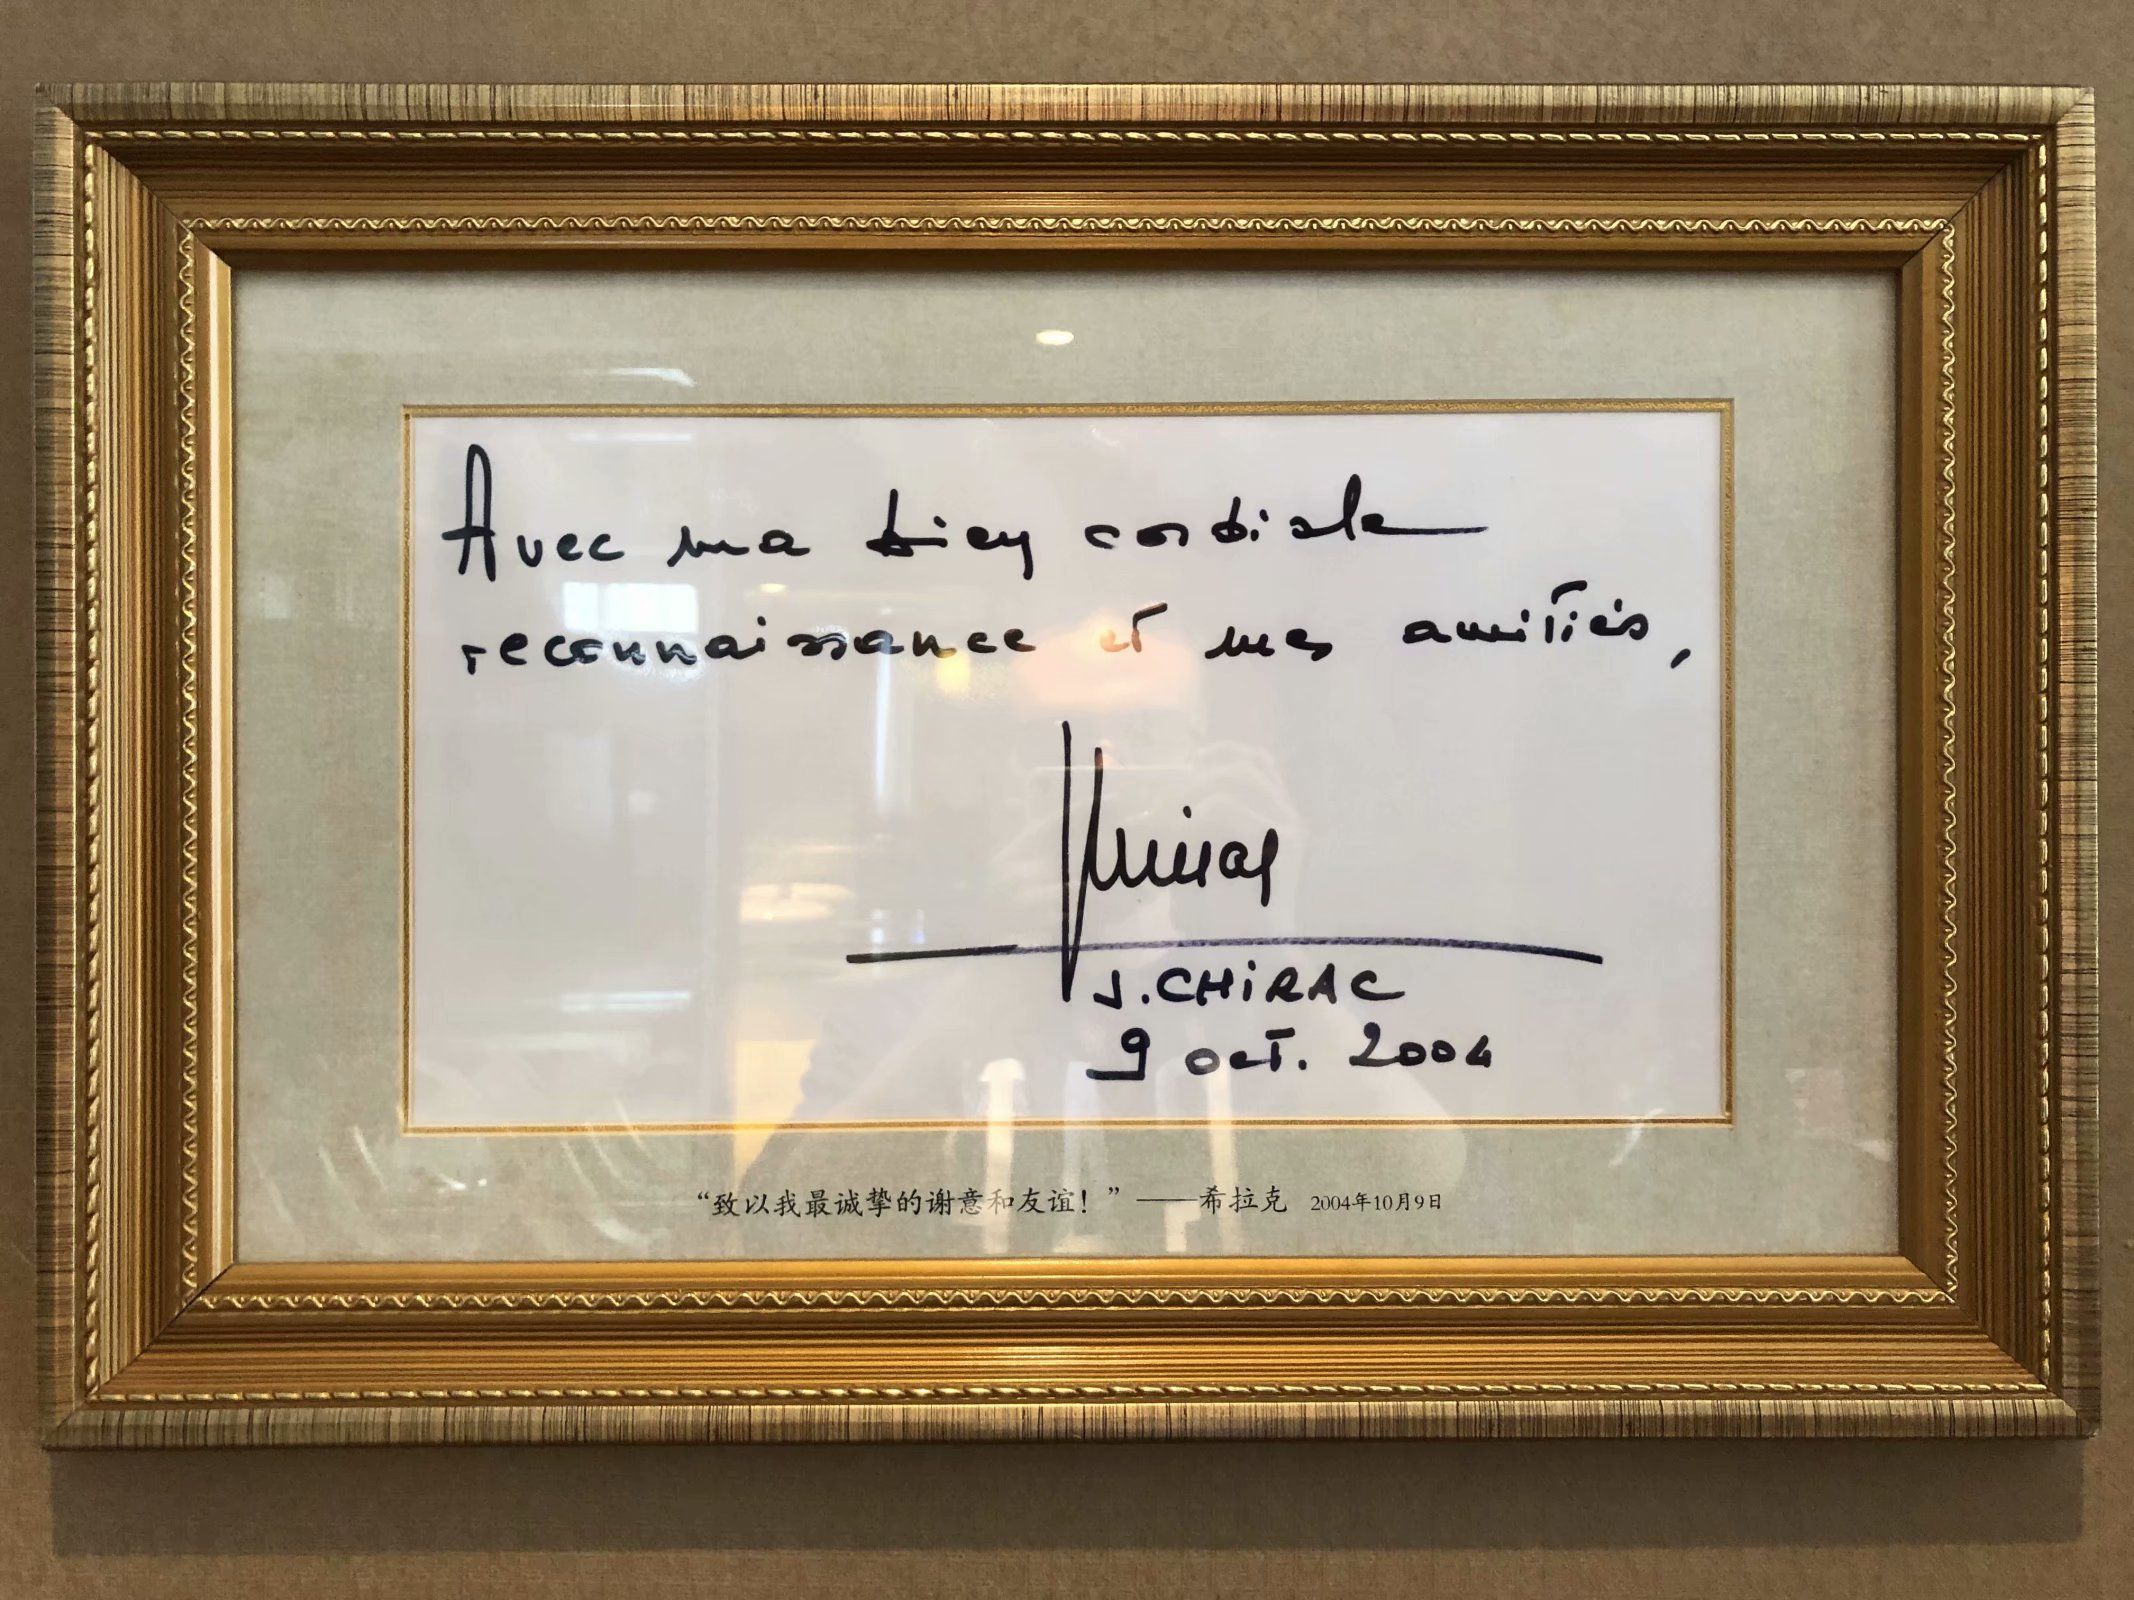 Avec ma bien cordiale
reconnaissance et mes amitiés,
J. CHIRAC
9 oct. 2004
“致以我最诚挚的谢意和友谊！”——希拉克 2004年10月9日